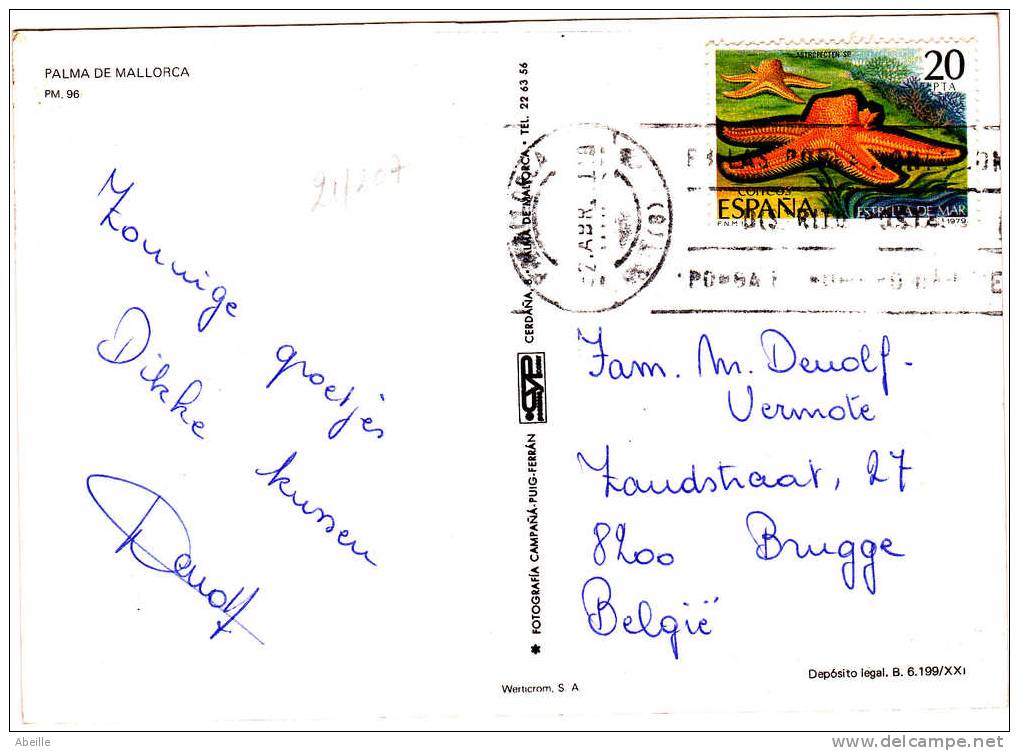 PALMA DE MALLORCA
PM. 96
21/207
Zonnige groetjes
Dikke kussen
Denolf
✱ FOTOGRAFÍA CAMPAÑÁ-PUIG-FERRÁN CYP CERDAÑA, 8 - PALMA DE MALLORCA • TEL. 22 63 56
Werticrom, S. A
ASTROPECTEN SP.
20
PTA
CORREOS
ESPAÑA
ESTRELLA DE MAR
F.N.M.T.
1979
2. ABR.
(8)
Fam. M. Denolf -
Vermote
Zandstraat, 27
8200 Brugge
België
Depósito legal. B. 6.199/XXI
Abeille
www.delcampe.net